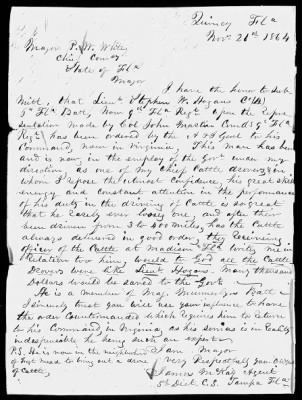 Quincy Fla
Novr 21st 1864
Major P. W. White
Chief Comsy
State of Fla
Major
I have the honor to Sub
mitt, that Lieut Stephen W. Hogans Co
5th Fla Bat, Now 9th Fla Regt upon the Repre
sentation made by Col John Martin Comdg 9th Fla
Regt has been ordered by the Genl to his
Command, now in Virginia, This man has been
and is now in the employ of the Govt under my
direction as one of my Chief Cattle drovers, One
whom I repose the utmost Confidence, his great
energy and Constant attention in the performance
of his duty in the driving of Cattle is so great
that he rarely ever looses one, and after they
been driven from 3 to 400 miles, has the Cattle
always delivered in good order, the Receiving
officer of the Cattle at Madison Fla told me in
Relation to him, would to God all the Cattle
Drovers were like Lieut Hogans. Many thousand
Dollars would be saved to the Govt
He is a member of Maj. Batt
I sincerely trust you will use your influence to have
the order Countermanded which requires him to return
to his Command in Virginia, as his services is in Reality
indispensible he being such an expert
P.S. He is now in the neighborhood
of Fort Mead to bring out a drove
of Cattle,
I am Major
Very Respectfully Your Obt
James McKay Agent
5th Dist C.S. Tampa Fla